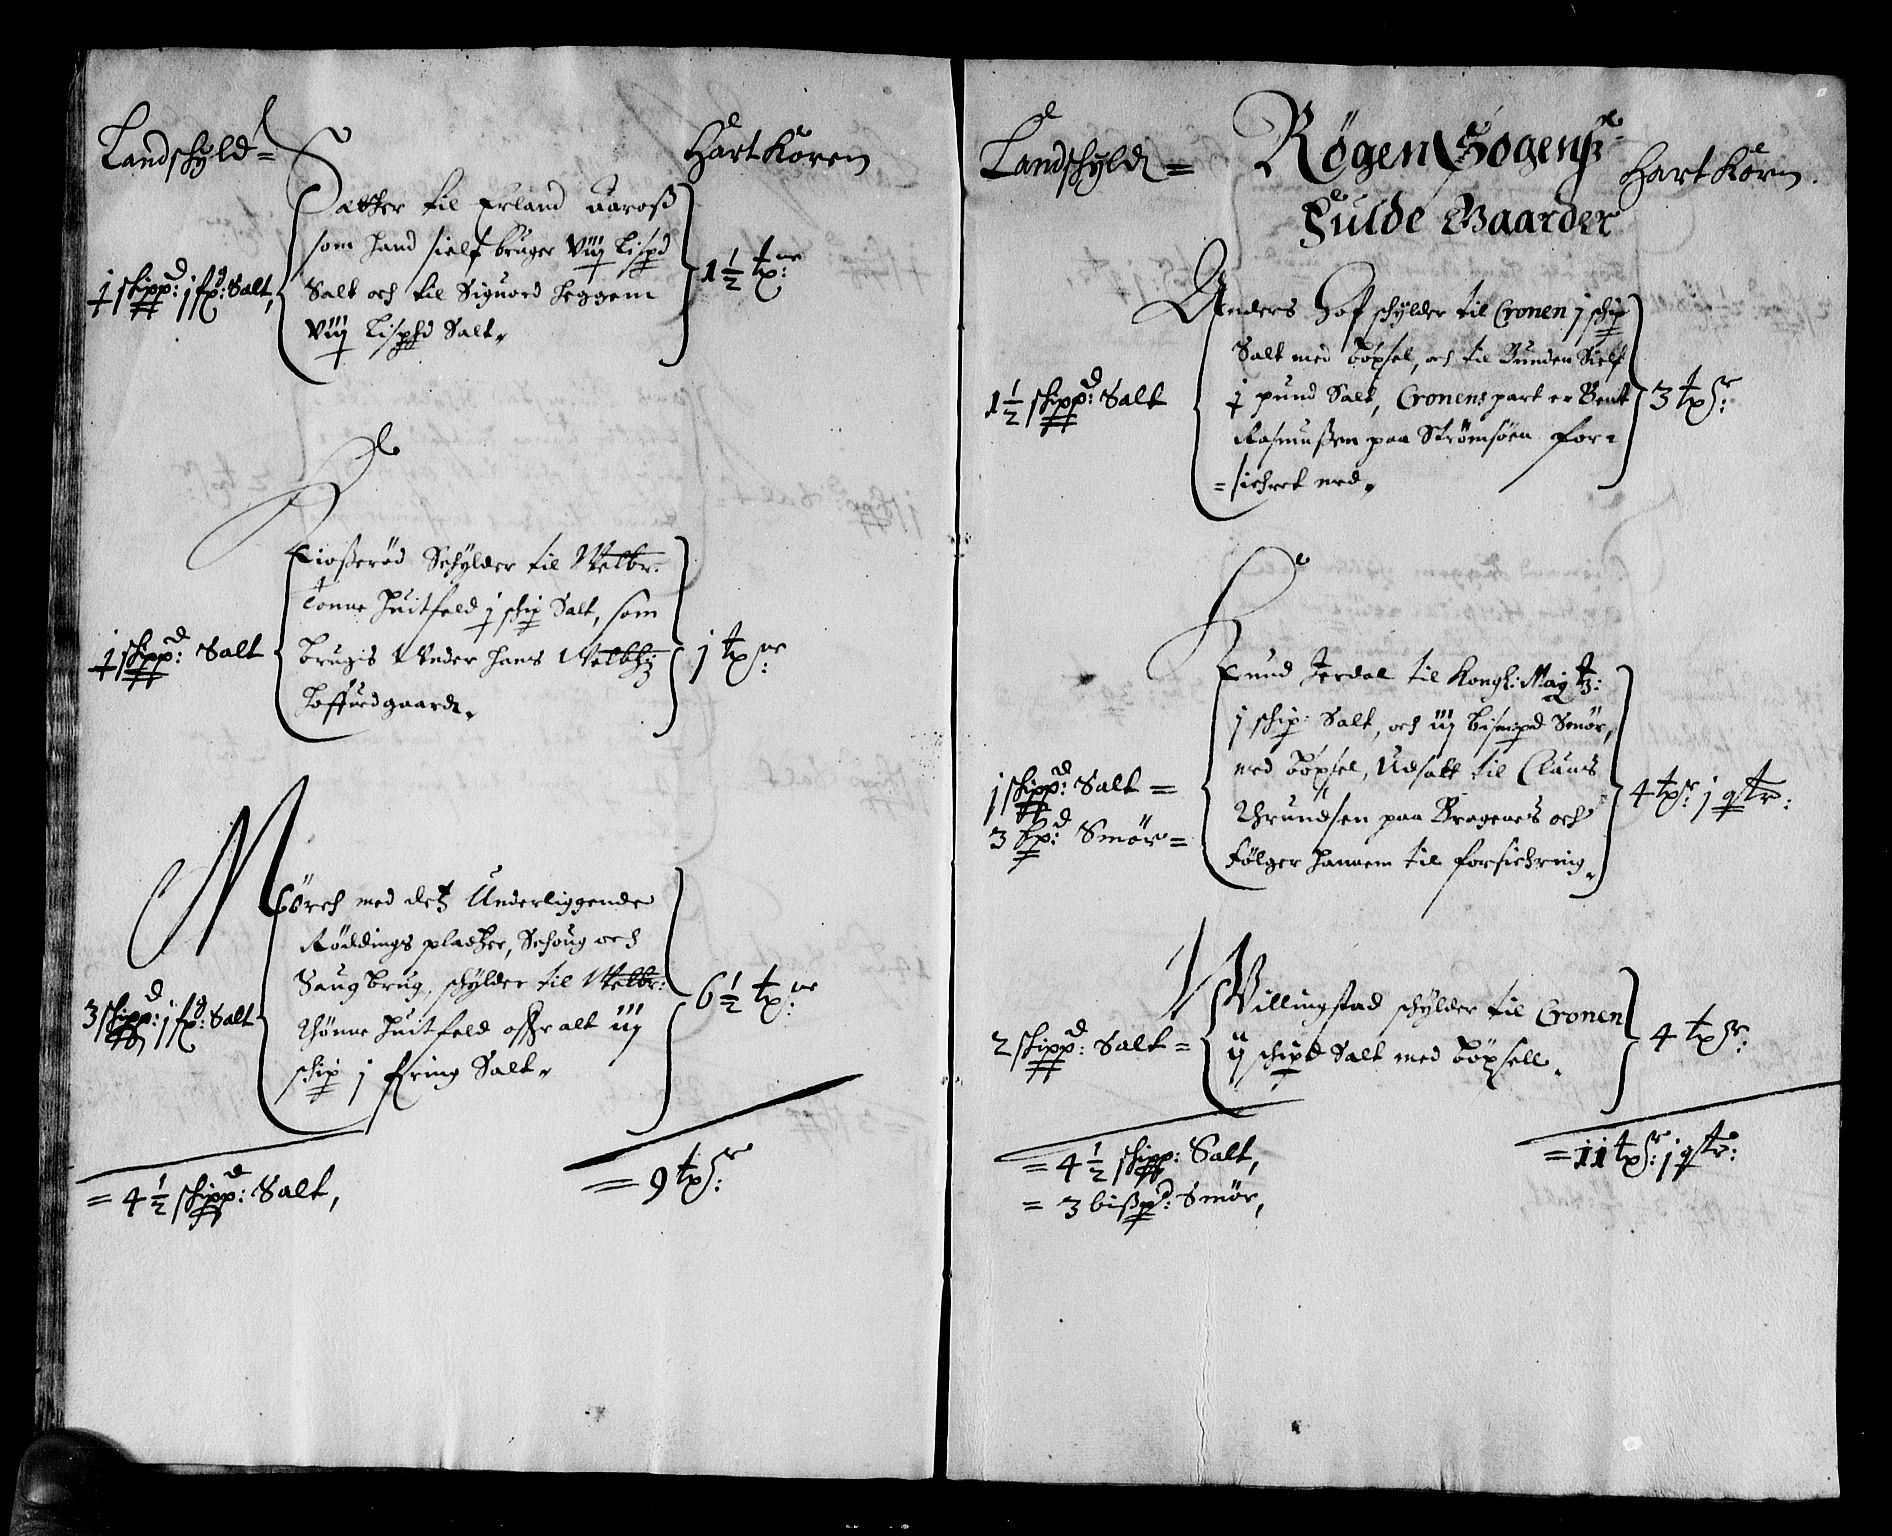 Landschyld =
Hart Koren
Sætther til Erland Aaroß
som hand sielf bruger viij Lispd
Salt och til Siguord Heggem
viij Lispd Salt.
j skippd: j fx: Salt,
1½ tx
Kioßerød Schylder til Welbr:
Tonne Huitfeld j skip Salt, som
brugis Under hans Welbh:
Hoffuedgaard.
j skippd: Salt
j tx
Mörch med det Underliggende
Röddings pladtzer, Schoug och
Saug brug, schylder til Welbr:
Thönne Huitfeld offr alt iij
skip j fring Salt.
3 skippd: j fx: Salt
6½ tx
= 4½ skippd: Salt,
= 9 tx:
Landschyld =
Røgen Sogens
Hart Koren.
Fulde Gaarder
Anders Hof schylder til Cronen j skip
Salt med böxsel, och til Bunden Sielf
j pund Salt, Cronens part er Bent
Rasmußen paa Strømsöen for=
=sichret med.
1½ skippd: Salt
3 tx:
Knud Jerdal til Kongl: Maytz:
j skip: Salt, och iij bismpd Smör,
med böxsel, Udsatt til Clauus
Thrundsen paa Bragenes och
Fölger hannem til forsichring.
j skippd: Salt =
3 bpd: Smör =
4 tx: j qstr:
Villingstad schylder til Cronen
ij skipd Salt med böxsell.
2 skippd: Salt =
4 tx:
= 4½ skipp: Salt,
= 11 tx: j qstr:
= 3 bißpd: Smör,